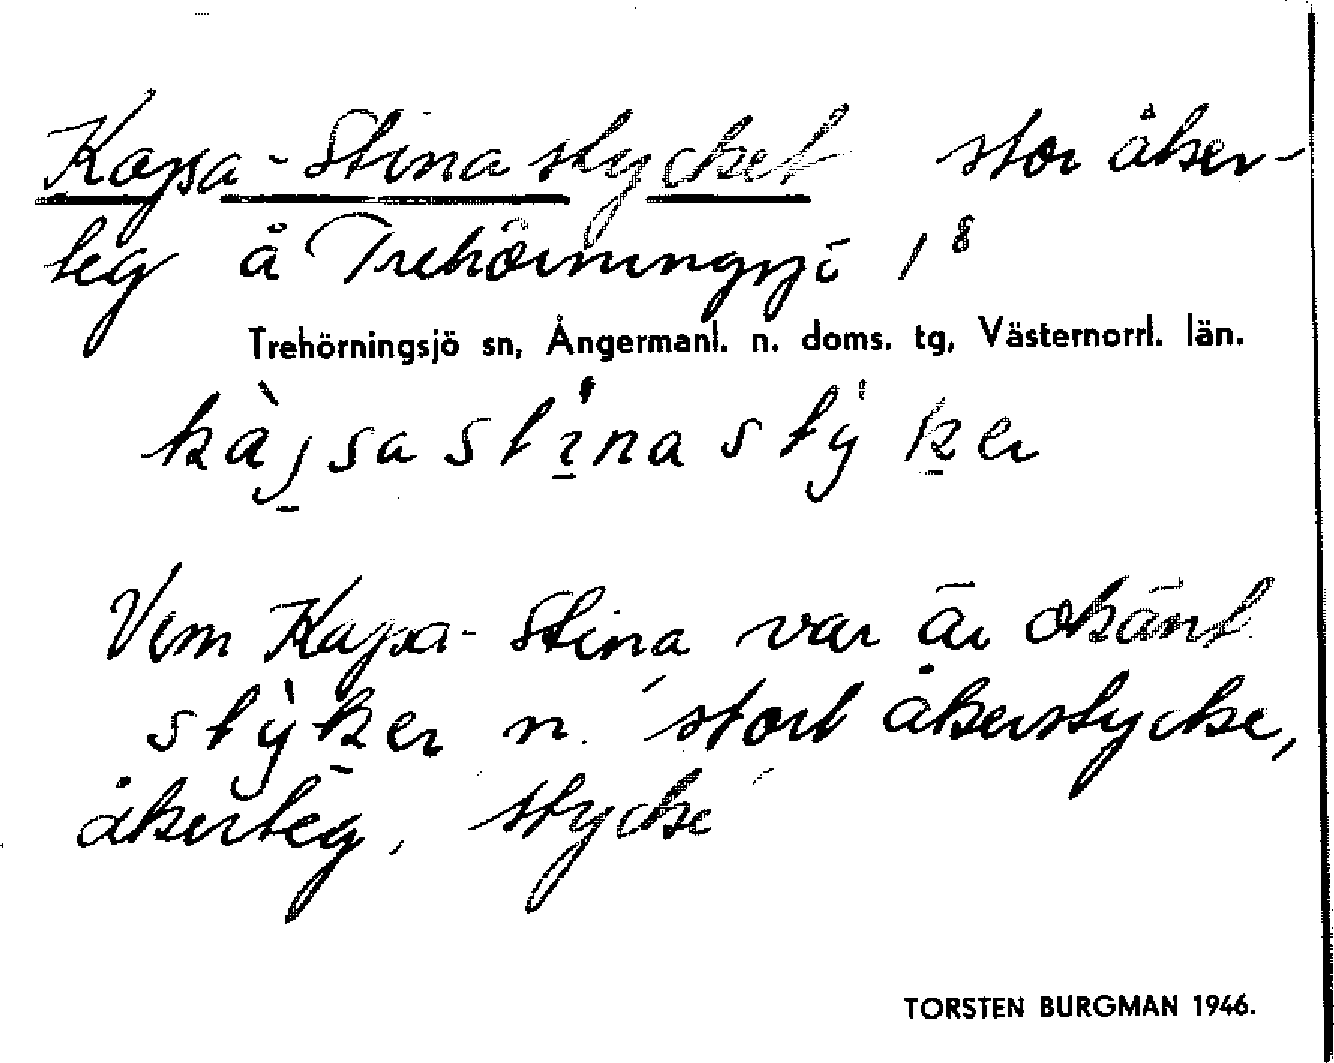 Kajsa-Stinastycket stor åker-
teg å Trehörningsjö 1⁸
Trehörningsjö sn, Ångermanl. n. doms. tg, Västernorrl. län.
kàjsastinastyker
Vem Kajsa-Stina var är okänt
stỳker n. stort åkerstycke,
åkerteg, stycke
TORSTEN BURGMAN 1946.